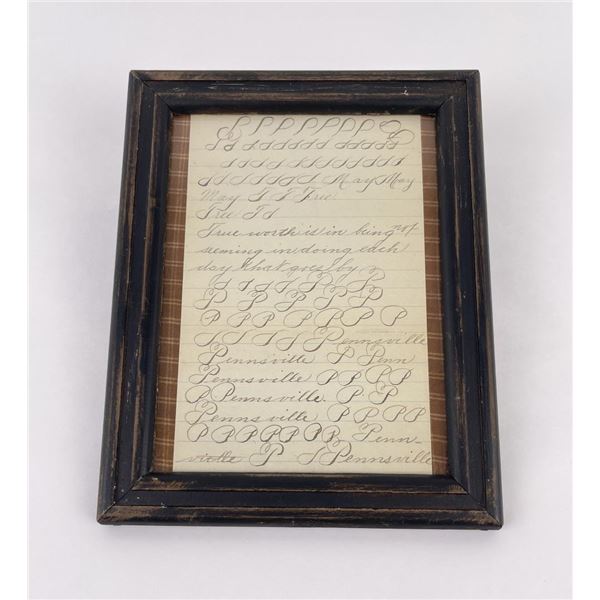 P P P P P P P
T T T T T T T T T
T T T T T T T T T T
T T T T T T T May May
May T T Tru
Tru T T
True worth is in being not
seeming in doing each
day that goes by
T T T T T
P P P P P
P P P P P P P
T T T T T Pennsville
Pennsville P Penn
Pennsville P P P P
P Pennsville. P P
Pennsville P P P P
P P P P P P P Penn-
ville P Pennsville